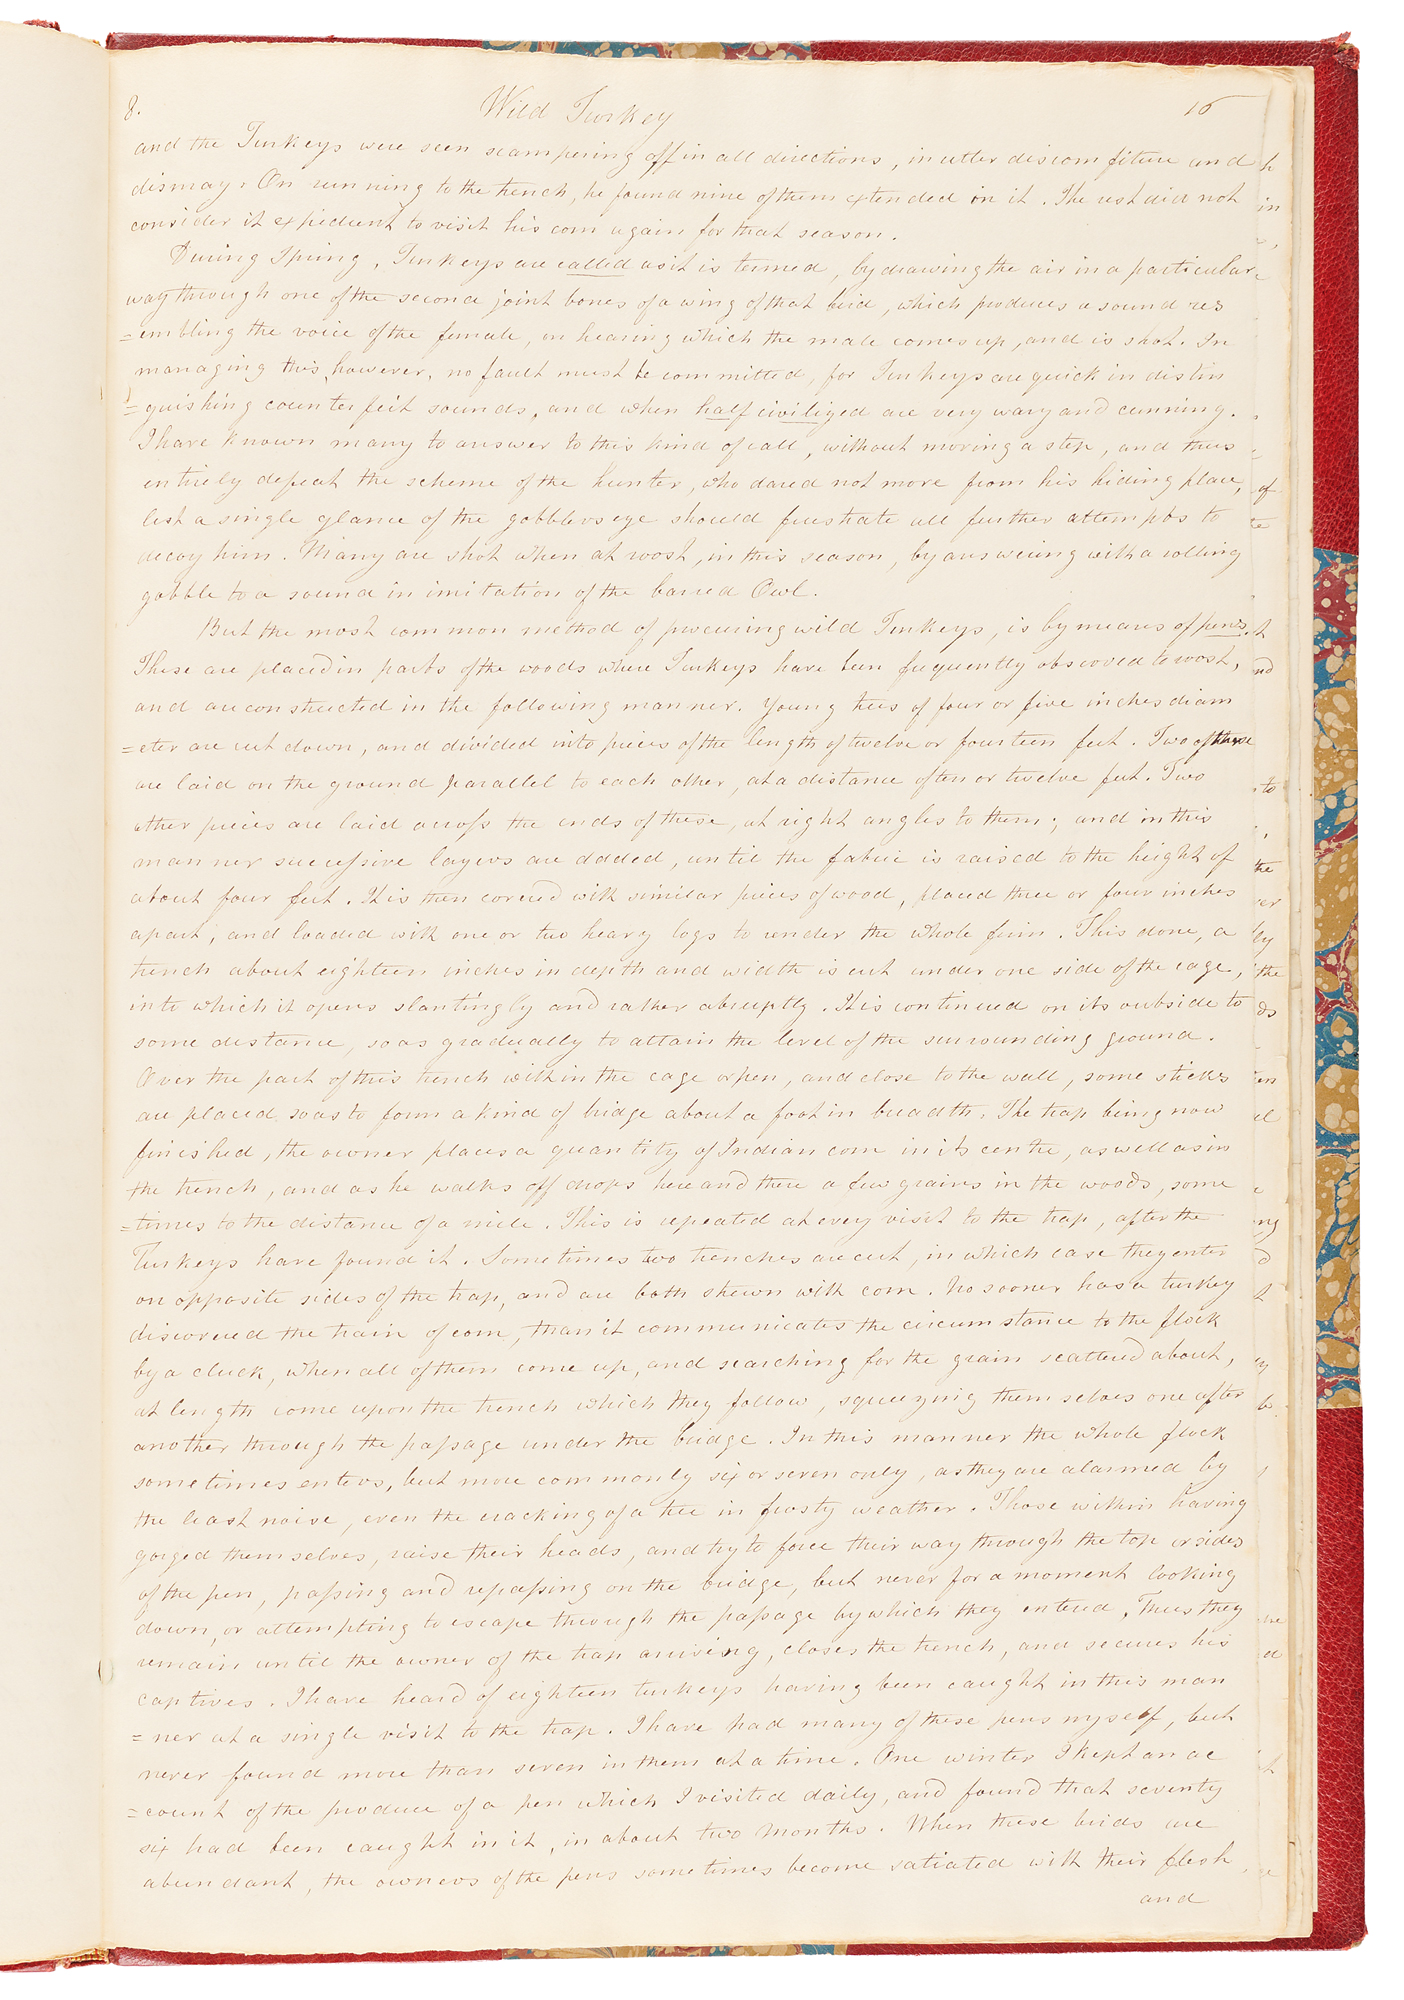 8. Wild Turkey 16
and the Turkeys were seen scampering off in all directions, in utter discomfiture and
dismay. On running to the trench, he found nine of them extended in it. The rest did not
consider it expedient to visit his corn again for that season.
During Spring, Turkeys are called as it is termed, by drawing the air in a particular
way through one of the second joint bones of a wing of that bird, which produces a sound res
=embling the voice of the female, on hearing which the male comes up, and is shot. In
managing this, however, no fault must be committed, for Turkeys are quick in distin
=guishing counterfeit sounds, and when half civilized are very wary and cunning.
I have known many to answer to this kind of call, without moving a step, and thus
entirely defeat the scheme of the hunter, who dared not move from his hiding place,
lest a single glance of the gobblers eye should frustrate all further attempts to
decoy him. Many are shot when at roost, in this season, by answering with a rolling
gobble to a sound in imitation of the barred Owl.
But the most common method of procuring wild Turkeys, is by means of pens.
These are placed in parts of the woods where Turkeys have been frequently observed to roost,
and are constructed in the following manner. Young trees of four or five inches diam
=eter are cut down, and divided into pieces of the length of twelve or fourteen feet. Two of these
are laid on the ground parallel to each other, at a distance of ten or twelve feet. Two
other pieces are laid across the ends of these, at right angles to them; and in this
manner successive layers are added, until the fabric is raised to the height of
about four feet. It is then covered with similar pieces of wood, placed three or four inches
apart, and loaded with one or two heavy logs to render the whole firm. This done, a
trench about eighteen inches in depth and width is cut under one side of the cage,
into which it opens slantingly and rather abruptly. It is continued on its outside to
some distance, so as gradually to attain the level of the surrounding ground.
Over the part of this trench within the cage or pen, and close to the wall, some sticks
are placed so as to form a kind of bridge about a foot in breadth. The trap being now
finished, the owner places a quantity of Indian corn in its centre, as well as in
the trench, and as he walks off drops here and there a few grains in the woods, some
=times to the distance of a mile. This is repeated at every visit to the trap, after the
Turkeys have found it. Sometimes two trenches are cut, in which case they enter
on opposite sides of the trap, and are both strewn with corn. No sooner has a turkey
discovered the train of corn, than it communicates the circumstance to the flock
by a cluck, when all of them come up, and searching for the grain scattered about,
at length come upon the trench which they follow, squeezing themselves one after
another through the passage under the bridge. In this manner the whole flock
sometimes enters, but more commonly six or seven only, as they are alarmed by
the least noise, even the cracking of a tree in frosty weather. Those within having
gorged themselves, raise their heads, and try to force their way through the top or sides
of the pen, passing and repassing on the bridge, but never for a moment looking
down, or attempting to escape through the passage by which they entered. Thus they
remain until the owner of the trap arriving, closes the trench, and secures his
captives. I have heard of eighteen turkeys having been caught in this man
=ner at a single visit to the trap. I have had many of these pens myself, but
never found more than seven in them at a time. One winter I kept an ac
=count of the produce of a pen which I visited daily, and found that seventy
six had been caught in it, in about two months. When these birds are
abundant, the owners of the pens sometimes become satiated with their flesh,
and